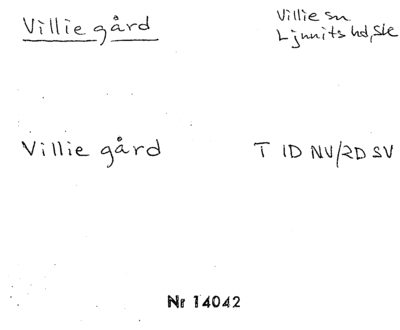 Villie gård
Villie sn
Ljunits hd, Ske
Villie gård
T 1D NV/2D SV
Nr 14042